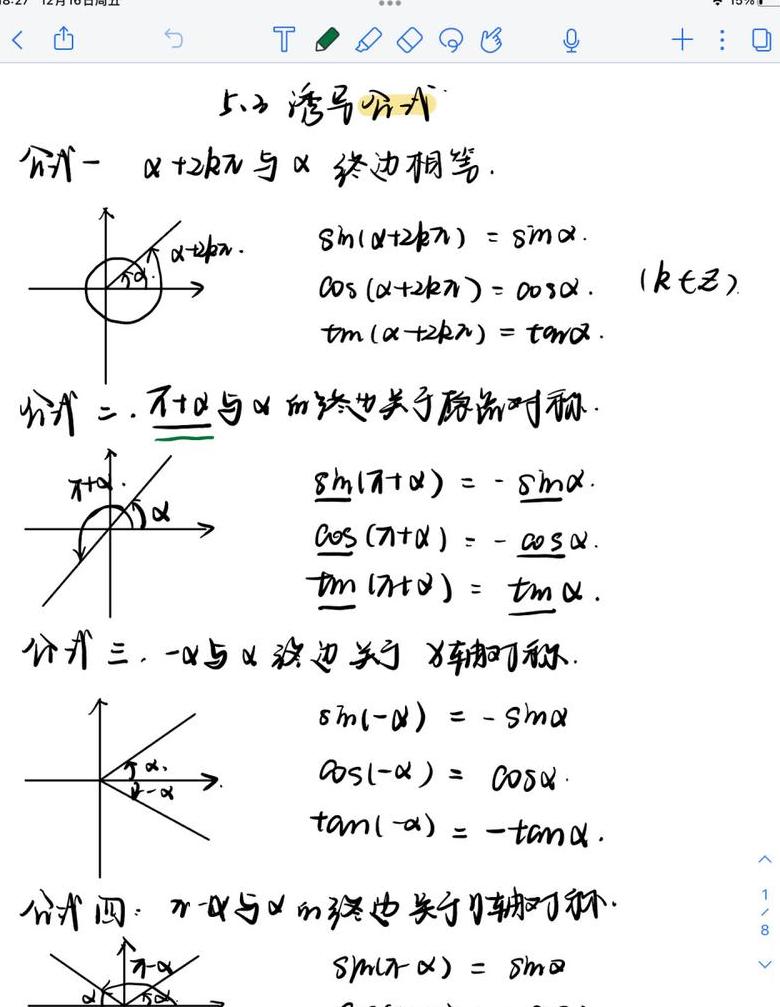 18:27 12月16日周五
15%
5.3 诱导公式
公式一 α+2kπ与α 终边相等.
α+2kπ.
α.
sin(α+2kπ) = sinα.
cos(α+2kπ) = cosα. (k∈Z)
tan(α+2kπ) = tanα.
公式二. π+α与α的终边关于原点对称.
π+α.
α
sin(π+α) = - sinα.
cos(π+α) = - cosα.
tan(π+α) = tanα.
公式三. -α与α终边关于x轴对称.
α.
-α
sin(-α) = - sinα
cos(-α) = cosα.
tan(-α) = -tanα.
公式四: π-α与α的终边关于y轴对称.
π-α
α
α
sin(π-α) = sinα
1/8